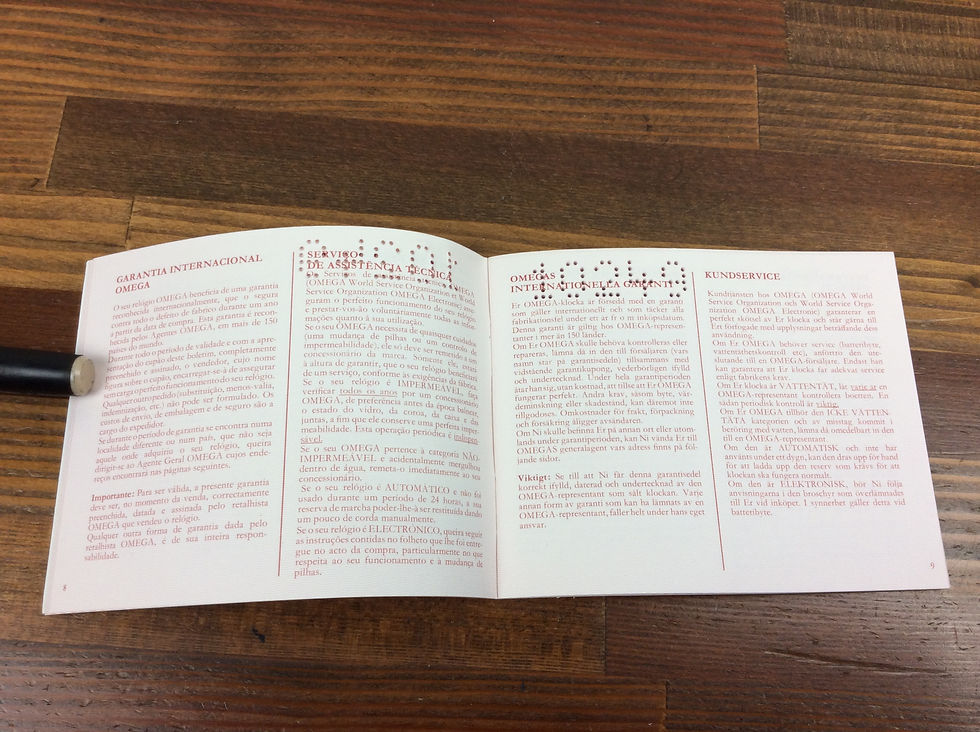 GARANTIA INTERNACIONAL
OMEGA
O seu relógio OMEGA beneficia de uma garantia
reconhecida internacionalmente, que o segura
contra todo o defeito de fabrico durante um ano
a partir da data de compra. Esta garantia é recon-
hecida pelos Agentes OMEGA, em mais de 150
países do mundo.
Durante todo o período de validade e com a apre-
sentação do cupão deste boletim, completamente
preenchido e assinado, o vendedor, cujo nome
figura sobre o cupão, encarregar-se-á de assegurar
sem cargo o perfeito funcionamento do seu relógio.
Qualquer outro pedido (substituição, menos valia,
indemnização, etc.) não pode ser formulado. Os
custos de envio, de embalagem e de seguro são a
cargo do expedidor.
Se durante o período de garantia se encontra numa
localidade diferente ou num país, que não seja
aquele onde adquiriu o seu relógio, queira
dirigir-se ao Agente Geral OMEGA cujos ende-
reços encontrará nas páginas seguintes.
Importante: Para ser válida, a presente garantia
deve ser, no momento da venda, correctamente
preenchida, datada e assinada pelo retalhista
OMEGA que vendeu o relógio.
Qualquer outra forma de garantia dada pelo
retalhista OMEGA, é de sua inteira respon-
sabilidade.
8
SERVIÇO
DE ASSISTÊNCIA TÉCNICA
Os Serviços de assistência técnica OMEGA
(OMEGA World Service Organization et World
Service Organization OMEGA Electronic) asse-
guram o perfeito funcionamento do seu relógio
e prestar-vos-ão voluntàriamente todas as infor-
mações quanto à sua utilização.
Se o seu OMEGA necessita de quaisquer cuidados
(uma mudança de pilhas ou um controle de
impermeabilidade), ele só deve ser remetido a um
concessionário da marca. Somente ele, estará
à altura de garantir, que o seu relógio beneficia
de um serviço, conforme às exigências da fábrica.
Se o seu relógio é IMPERMEÁVEL, faça
verificar todos os anos por um concessionário
OMEGA, de preferência antes da época balnear,
o estado do vidro, da coroa, da caixa e das
juntas, a fim que ele conserve uma perfeita imper-
meabilidade. Esta operação periódica é indispen-
sável.
Se o seu OMEGA pertence à categoria NÃO-
IMPERMEÁVEL e acidentalmente mergulhou
dentro de água, remeta-o imediatamente ao seu
concessionário.
Se o seu relógio é AUTOMÁTICO e não foi
usado durante um período de 24 horas, a sua
reserva de marcha poder-lhe-à ser restituída dando
um pouco de corda manualmente.
Se o seu relógio é ELECTRÓNICO, queira seguir
as instruções contidas no folheto que lhe foi entre-
gue no acto da compra, particularmente no que
respeita ao seu funcionamento e a mudança de
pilhas.
10249
OMEGAS
INTERNATIONELLA GARANTI
Er OMEGA-klocka är försedd med en garanti
som gäller internationellt och som täcker alla
fabrikationsfel under ett år fr o m inköpsdatum.
Denna garanti är giltig hos OMEGA-represen-
tanter i mer än 150 länder.
Om Er OMEGA skulle behöva kontrolleras eller
repareras, lämna då in den till försäljaren (vars
namn står på garantisedeln) tillsammans med
vidstående garantikupong, vederbörligen ifylld
och undertecknad. Under hela garantiperioden
åtar han sig, utan kostnad, att tillse att Er OMEGA
fungerar perfekt. Andra krav, såsom byte, vär-
deminskning eller skadestånd, kan däremot inte
tillgodoses. Omkostnader för frakt, förpackning
och försäkring åligger avsändaren.
Om Ni skulle befinna Er på annan ort eller utom-
lands under garantiperioden, kan Ni vända Er till
OMEGAS generalagent vars adress finns på föl-
jande sidor.
Viktigt: Se till att Ni får denna garantisedel
korrekt ifylld, daterad och undertecknad av den
OMEGA-representant som sålt klockan. Varje
annan form av garanti som kan ha lämnats av en
OMEGA-representant, faller helt under hans eget
ansvar.
KUNDSERVICE
Kundtjänsten hos OMEGA (OMEGA World
Service Organization och World Service Orga-
nization OMEGA Electronic) garanterar en
perfekt skötsel av Er klocka och står gärna till
Ert förfogade med upplysningar beträffande dess
användning.
Om Er OMEGA behöver service (batteribyte,
vattentäthetskontroll etc), anförtro den ute-
slutande till en OMEGA-försäljare. Endast han
kan garantera att Er klocka får adekvat service
enligt fabrikens krav.
Om Er klocka är VATTENTÄT, låt varje år en
OMEGA-representant kontrollera boetten. En
sådan periodisk kontroll är viktig.
Om Er OMEGA tillhör den ICKE VATTEN-
TÄTA kategorien och av misstag kommit i
beröring med vatten, lämna då omedelbart in den
till en OMEGA-representant.
Om den är AUTOMATISK och inte har
använts under ett dygn, kan den dras upp för hand
för att ladda upp den reserv som krävs för att
klockan ska fungera normalt.
Om den är ELEKTRONISK, bör Ni följa
anvisningarna i den broschyr som överlämnades
till Er vid inköpet. I synnerhet gäller detta vid
batteribyte.
9